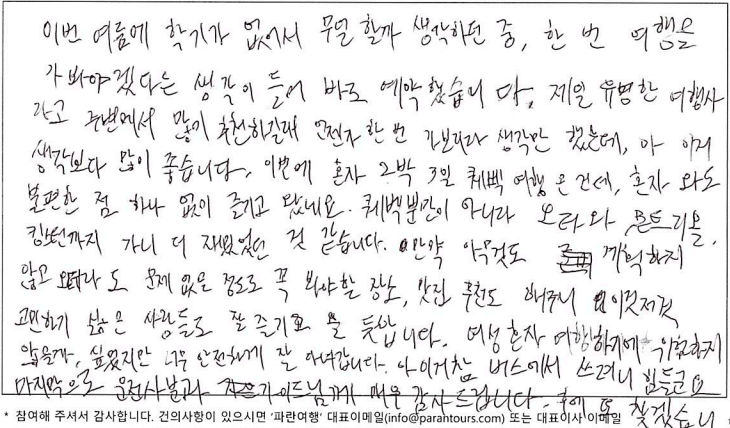 이번 여름에 학기가 없어서 무얼 할까 생각하던 중, 한 번 여행을
가봐야겠다는 생각이 들어 바로 예약했습니다. 제일 유명한 여행사
라고 주변에서 많이 추천하길래 언젠가 한 번 가보리라 생각만 했는데, 아 이거
생각보다 많이 좋습니다. 이번에 혼자 2박 3일 퀘벡 여행 온건데, 혼자 와도
불편한 점 하나 없이 즐기고 왔네요. 퀘벡뿐만이 아니라 오타와 몬트리올,
킹스턴까지 가니 더 재밌었던 것 같습니다. 만약 아무것도 기억하지
않고 오더라도 문제 없을 정도로 꼭 봐야할 장소, 맛집 추천도 해주니 이것저것
고민하기 싫은 사람들도 잘 즐기고 올 듯합니다. 여성 혼자 여행하기에 위험하지
않을까, 싶었지만 너무 안전하게 잘 다녀갑니다. 아 이거 참 버스에서 쓰려니 힘들군요
마지막으로 운전사분과 가이드님께 매우 감사드립니다. 후에 또 찾겠습니
* 참여해 주셔서 감사합니다. 건의사항이 있으시면 '파란여행' 대표이메일(info@parantours.com) 또는 대표이사 이메일